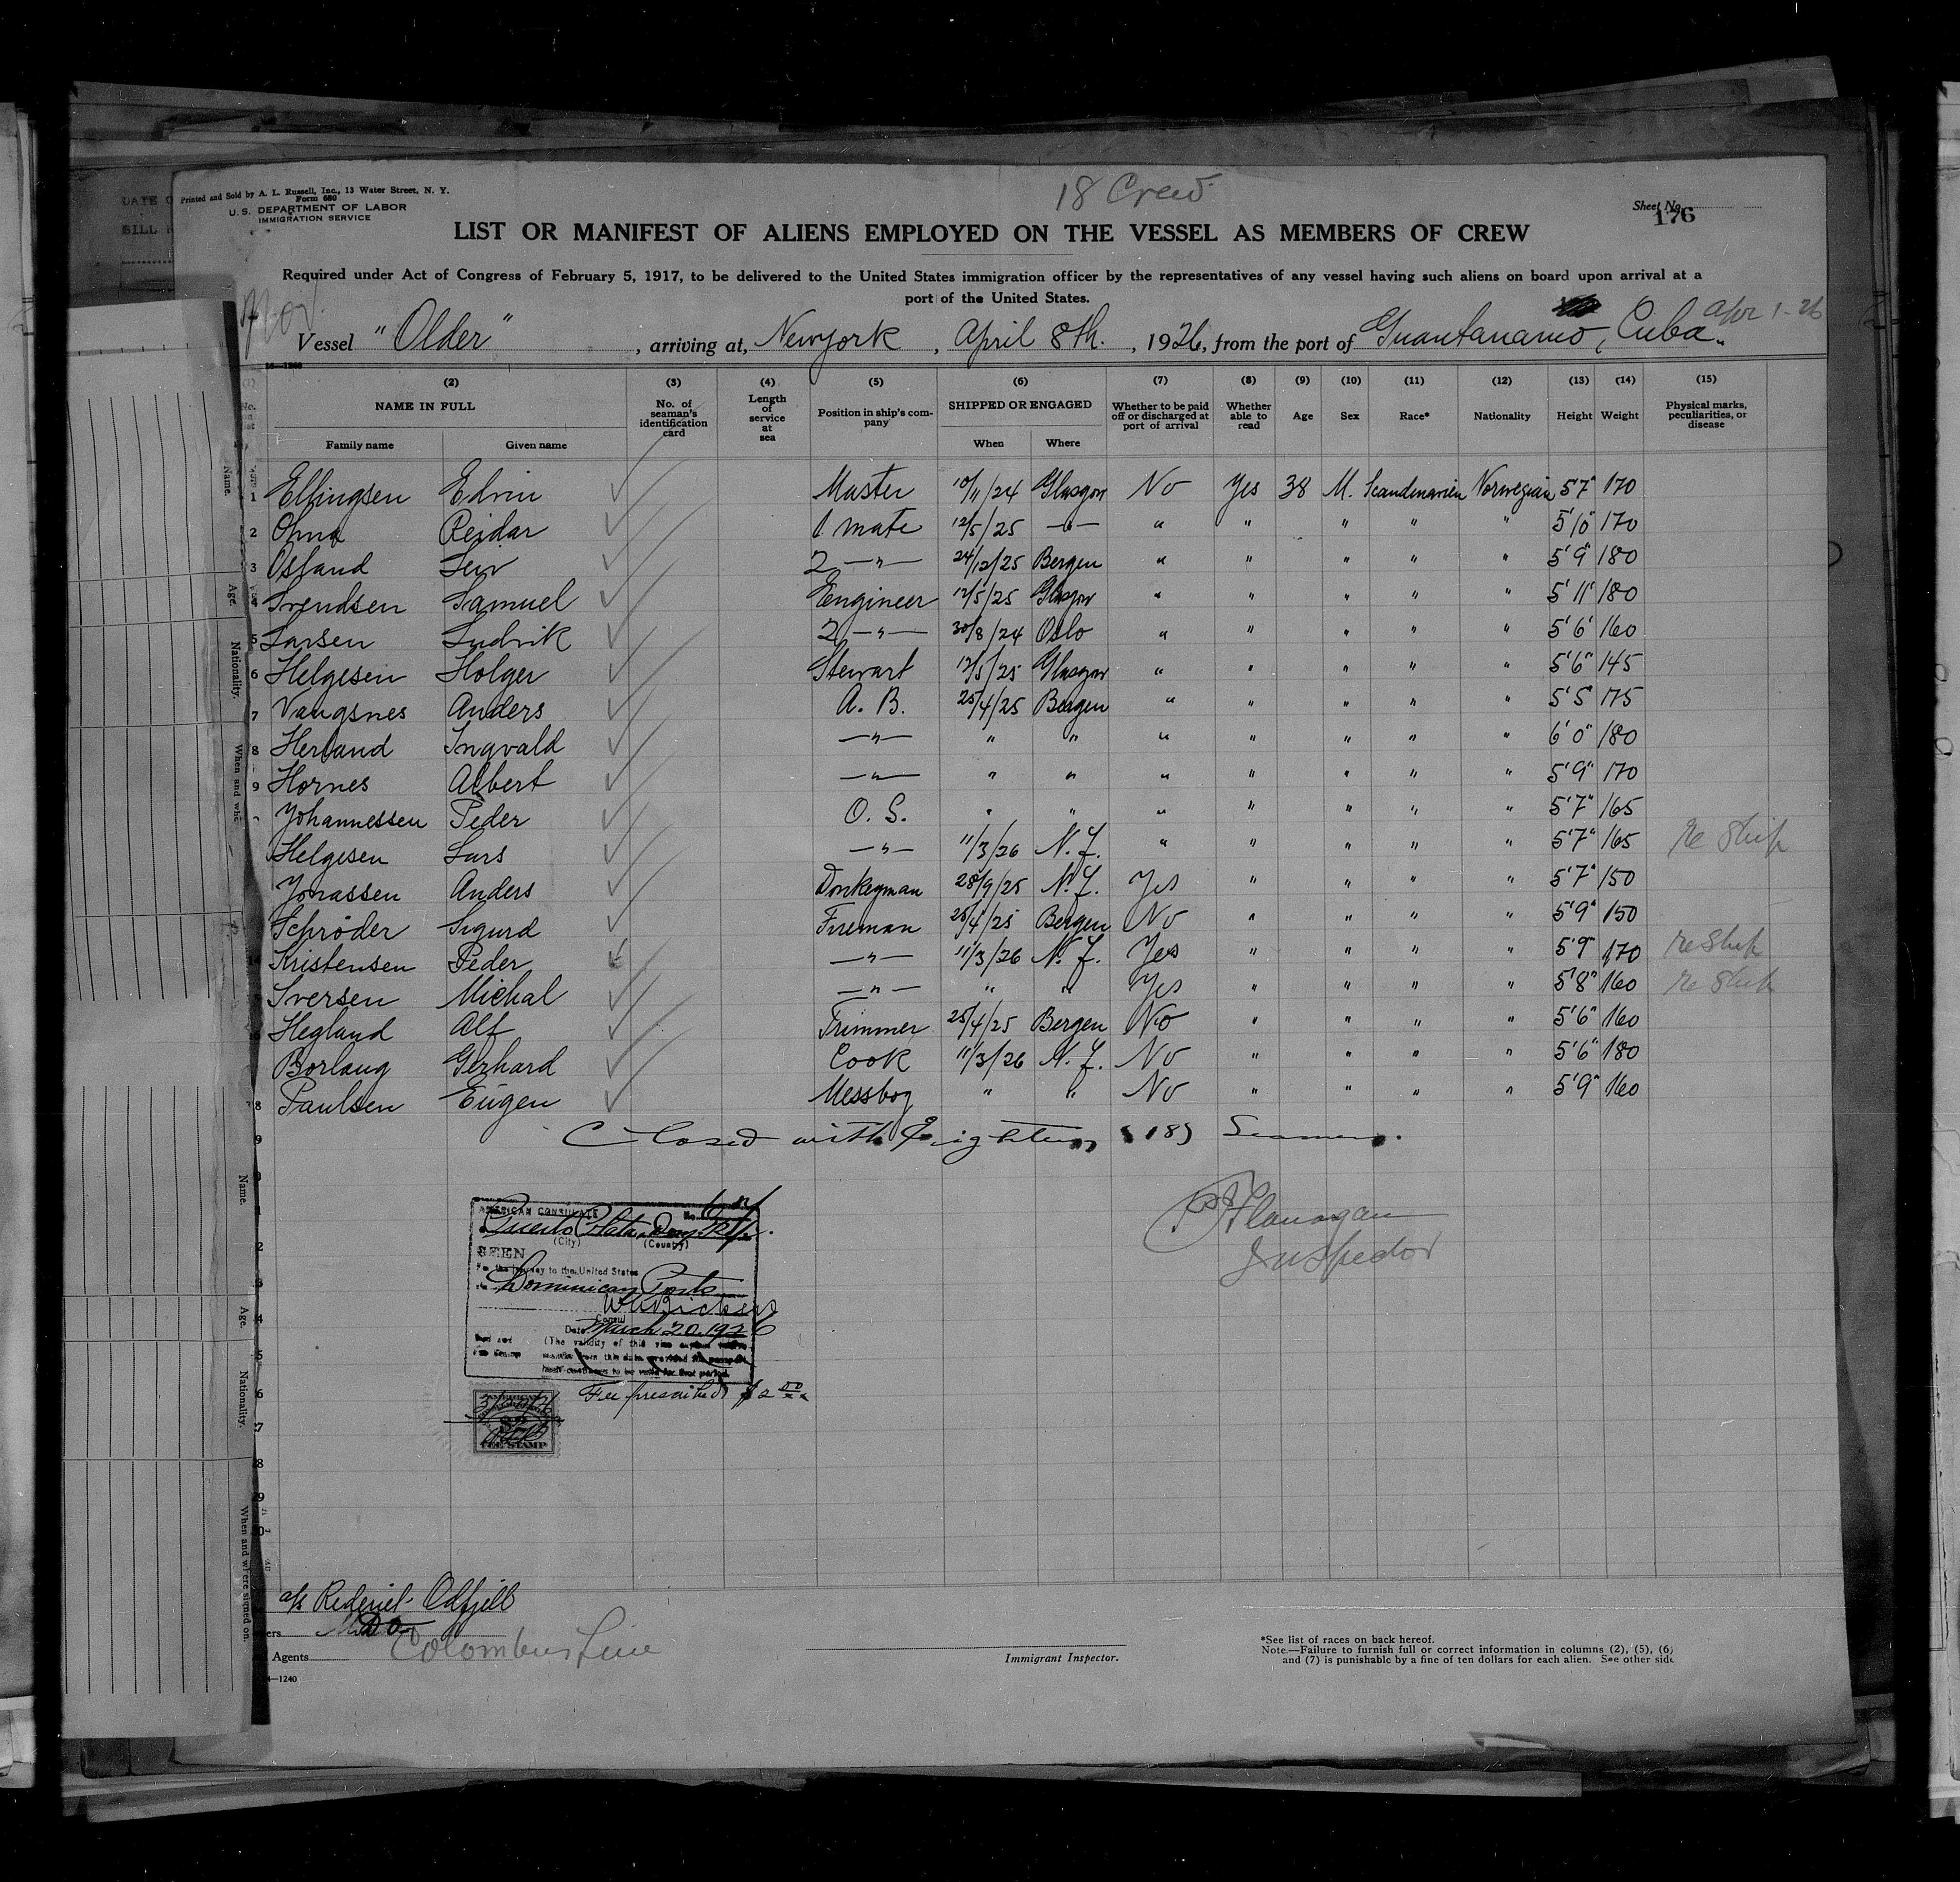 18 Crew
Printed and Sold by A. L. Russell, Inc., 13 Water Street, N. Y.
Form 680
U. S. DEPARTMENT OF LABOR
IMMIGRATION SERVICE
Sheet No.
176
LIST OR MANIFEST OF ALIENS EMPLOYED ON THE VESSEL AS MEMBERS OF CREW
Required under Act of Congress of February 5, 1917, to be delivered to the United States immigration officer by the representatives of any vessel having such aliens on board upon arrival at a
port of the United States.
Nor.
Apr 1-26
Vessel "Older", arriving at, Newyork, April 8th., 1926, from the port of Guantanamo, Cuba.
(2) (3) (4) (5) (6) (7) (8) (9) (10) (11) (12) (13) (14) (15)
NAME IN FULL No. of seaman's identification card Length of service at sea Position in ship's company SHIPPED OR ENGAGED Whether to be paid off or discharged at port of arrival Whether able to read Age Sex Race* Nationality Height Weight Physical marks, peculiarities, or disease
Family name Given name When Where
1 Ellingsen Edvin Master 10/11/24 Glasgow No Yes 38 M. Scandinavien Norwegian 5'7" 170
2 Ohna Reidar 1 mate 12/5/25 —"— " " " " " 5'10" 170
3 Osland Leiv 2 —"— 24/12/25 Bergen " " " " " 5'9" 180
4 Svendsen Samuel Engineer 12/5/25 Glasgow " " " " " 5'11" 180
5 Larsen Ludvik 2 —"— 30/8/24 Oslo " " " " " 5'6" 160
6 Helgesen Holger Stewart 12/5/25 Glasgow " " " " " 5'6" 145
7 Vangsnes Anders A. B. 25/4/25 Bergen " " " " " 5'5" 175
8 Herland Ingvald —"— " " " " " " " 6'0" 180
9 Hornes Albert —"— " " " " " " " 5'9" 170
Johannessen Peder O. S. " " " " " " " 5'7" 165
Helgesen Lars —"— 11/3/26 N. Y. " " " " " 5'7" 165 re Ship
Jonassen Anders Donkeyman 28/9/25 N. Y. Yes " " " " 5'7" 150
Schrøder Sigurd Fireman 25/4/25 Bergen No " " " " 5'9" 150
14 Kristensen Peder —"— 11/3/26 N. Y. Yes " " " " 5'9" 170 re Ship
Iversen Michal —"— " " Yes " " " " 5'8" 160 re Ship
16 Hegland Alf Trimmer 25/4/25 Bergen No " " " " 5'6" 160
Borlaug Gerhard Cook 11/3/26 N. Y. No " " " " 5'6" 180
18 Paulsen Eugen Messboy " " No " " " " 5'9" 160
Closed with Eighteen (18) Seamen.
Flanagan
Inspector
AMERICAN CONSULATE
Puerto Plata, Dom.
(City) (Country)
SEEN
For the journey to the United States
Dominican Ports
Consul
Date March 20, 1926
(The validity of this
Fee prescribed $2.00
FEE STAMP
a/s Rederiet Odfjell
Agents Colombus Line
Immigrant Inspector.
*See list of races on back hereof.
Note.—Failure to furnish full or correct information in columns (2), (5), (6)
and (7) is punishable by a fine of ten dollars for each alien. See other side
Name.
Age.
Nationality.
When and whe
Name.
Age.
Nationality.
When and where signed on.